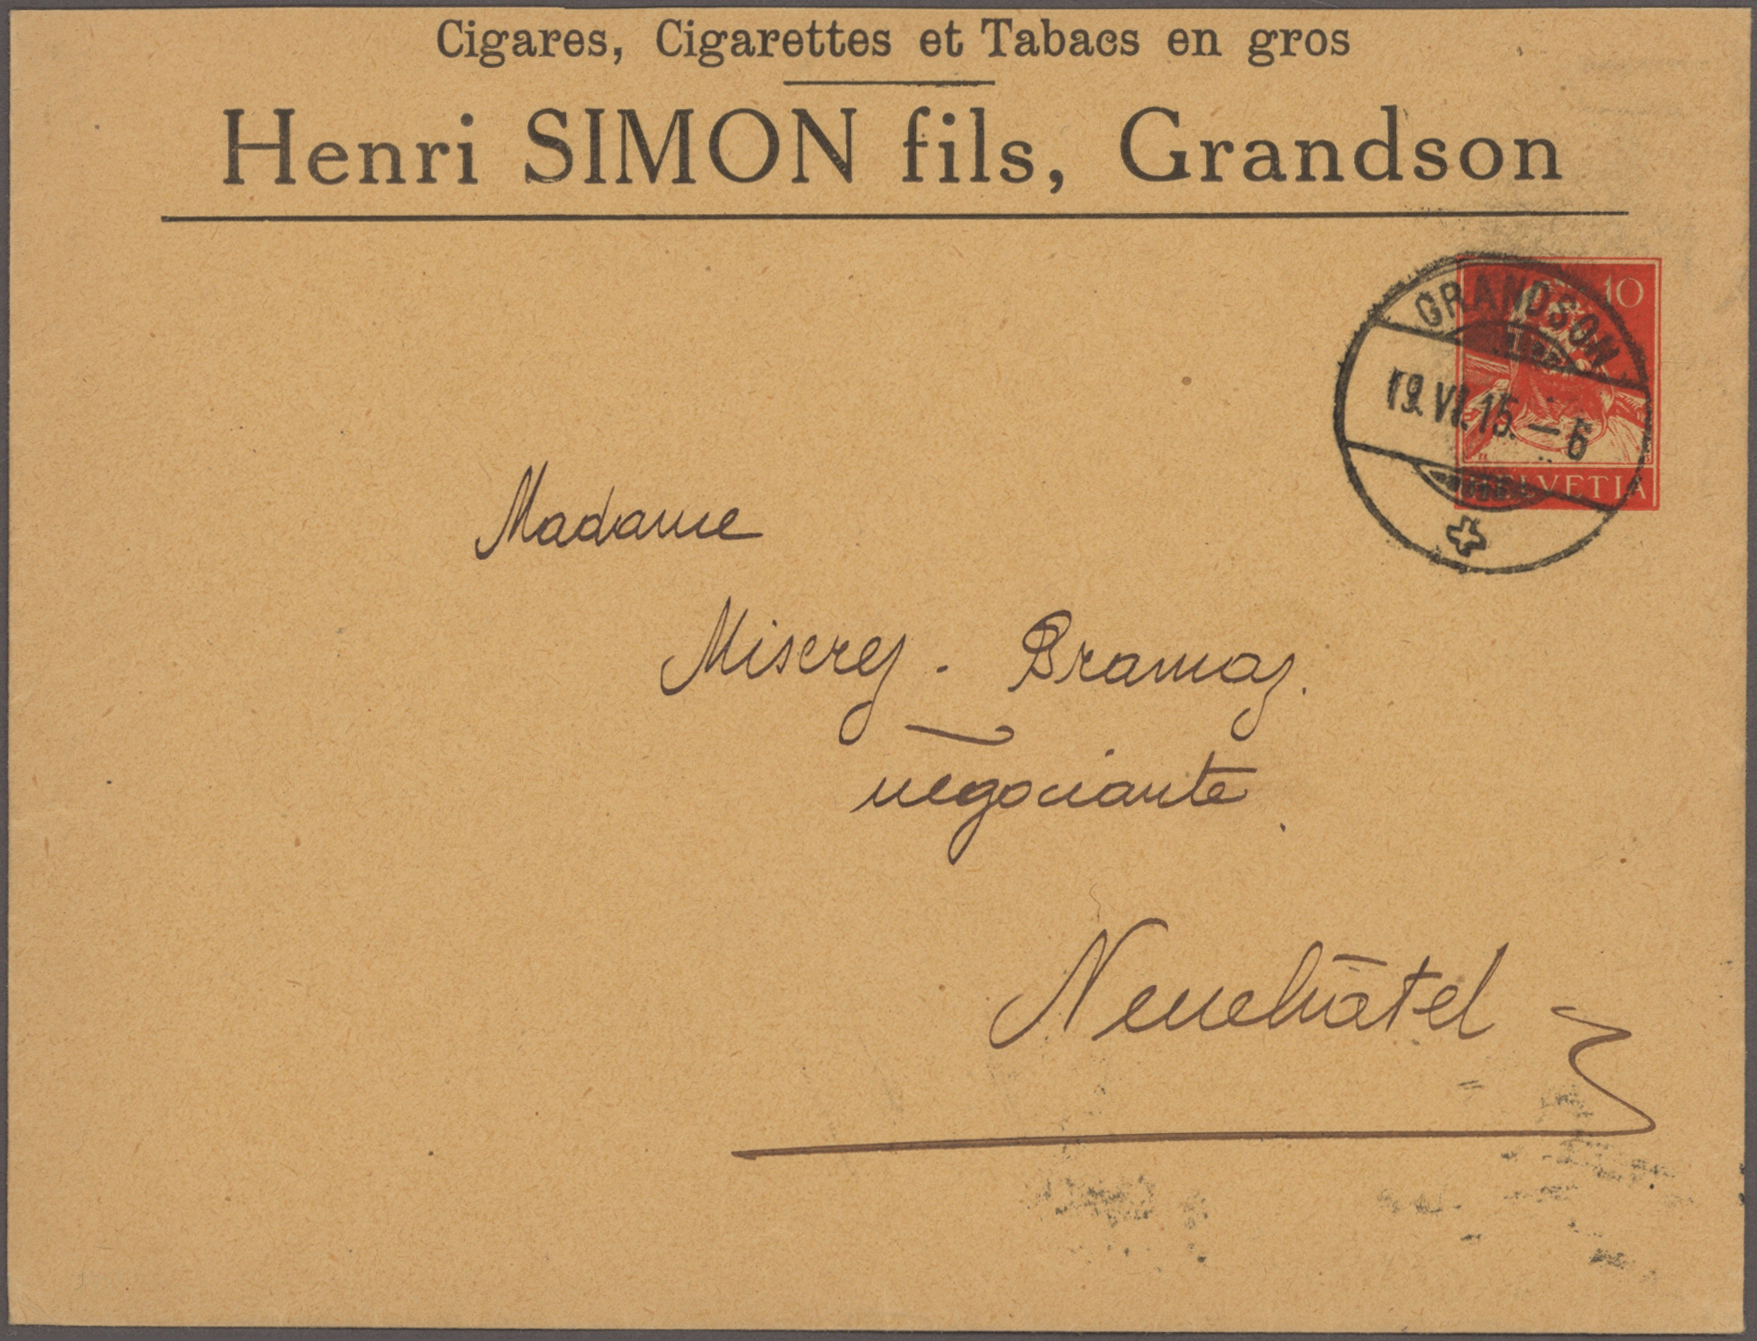 Cigares, Cigarettes et Tabacs en gros
Henri SIMON fils, Grandson
10
GRANDSON
19.VI.15.–6
HELVETIA
Madame
Miserez - Bramaz.
négociante.
Neuchâtel